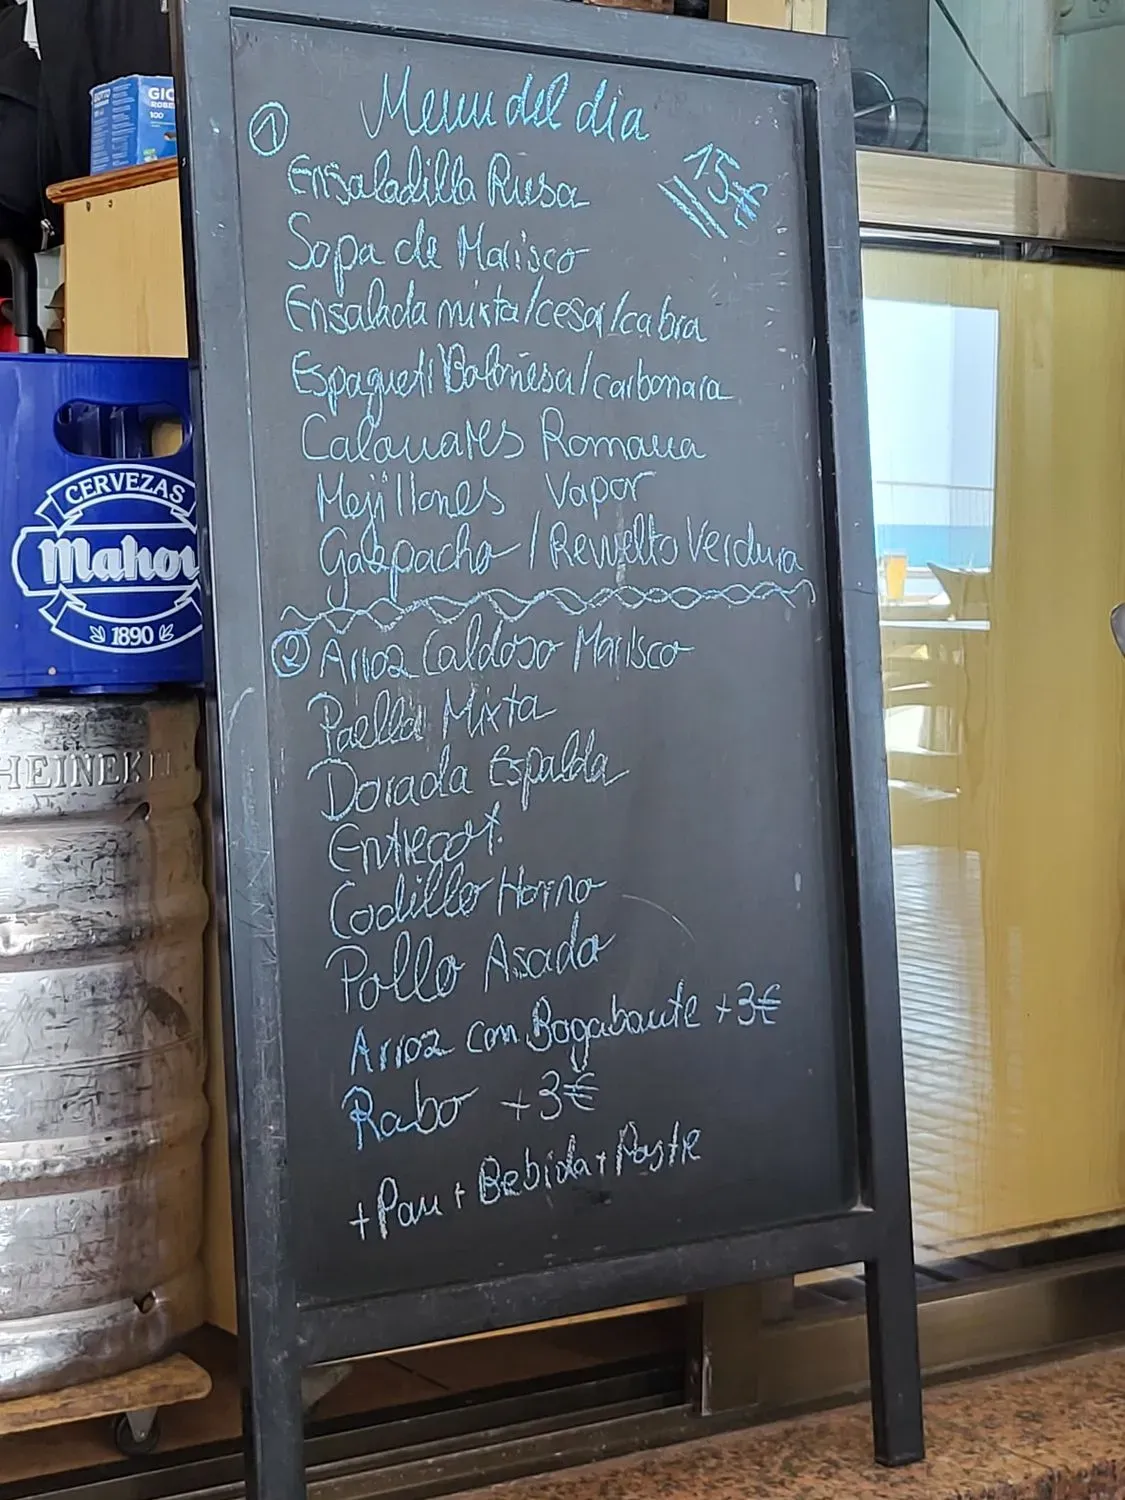 Menu del dia
①
15€
Ensaladilla Rusa
Sopa de Marisco
Ensalada mixta/cesar/cabra
Espagueti Boloñesa/carbonara
Calamares Romana
Mejillones Vapor
Gazpacho / Revuelto Verdura
② Arroz Caldoso Marisco
Paella Mixta
Dorada Espalda
Entrecot.
Codillo Horno
Pollo Asado
Arroz con Bogabante +3€
Rabo +3€
+Pan + Bebida + Postre
GIO
ROBE
100
CERVEZAS
Mahou
1890
HEINEKEN